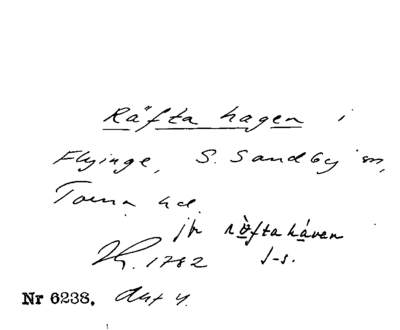 Räfta hagen i
Flyinge, S. Sandby sn,
Torna hd.
jfr röftahåven
Kh. 1782 f-s.
Nr 6238. Akt 4.